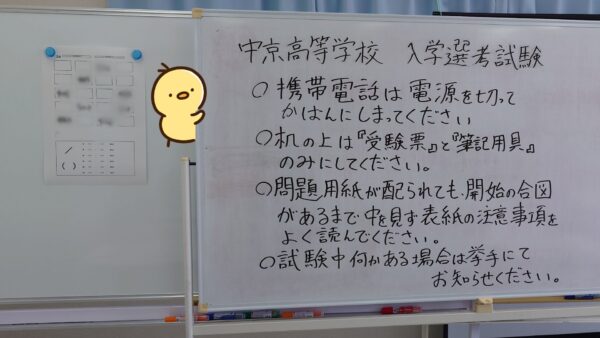 中京高等学校 入学選考試験
○携帯電話は電源を切って
かばんにしまってください
○机の上は『受験票』と『筆記用具』
のみにしてください。
○問題用紙が配られても、開始の合図
があるまで中を見ず表紙の注意事項を
よく読んでください。
○試験中何かある場合は挙手にて
お知らせください。